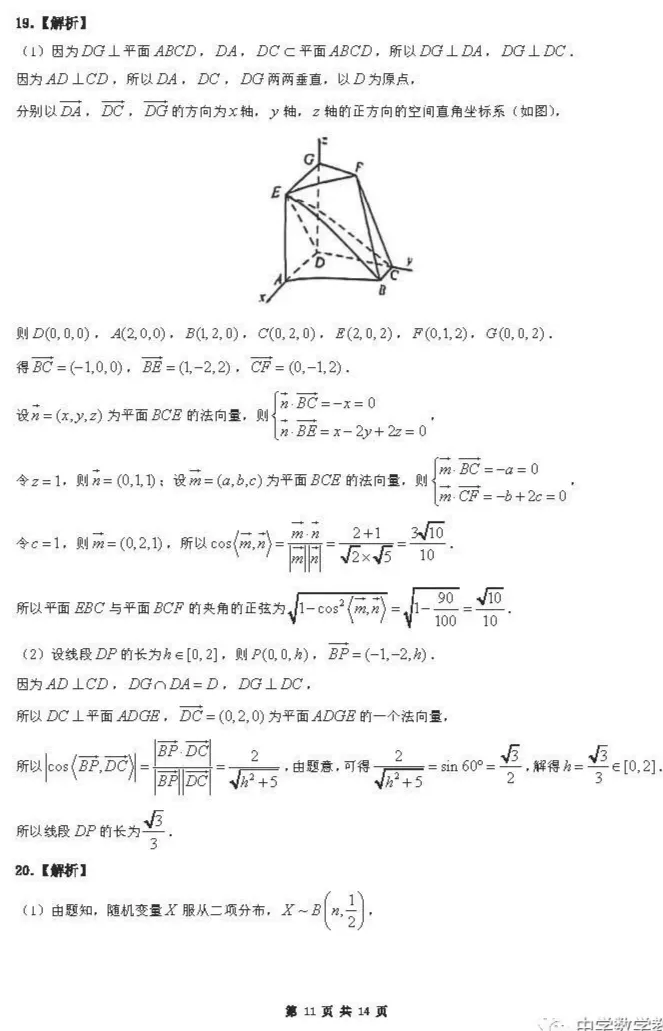 19.【解析】
（1）因为 DG⊥平面 ABCD，DA，DC⊂平面 ABCD，所以 DG⊥DA，DG⊥DC．
因为 AD⊥CD，所以 DA，DC，DG 两两垂直，以 D 为原点，
分别以 \overrightarrow{DA}，\overrightarrow{DC}，\overrightarrow{DG} 的方向为 x 轴，y 轴，z 轴的正方向的空间直角坐标系（如图），
z
G
F
E
D
C
y
A
B
x
则 D(0,0,0)，A(2,0,0)，B(1,2,0)，C(0,2,0)，E(2,0,2)，F(0,1,2)，G(0,0,2)．
得 \overrightarrow{BC}=(-1,0,0)，\overrightarrow{BE}=(1,-2,2)，\overrightarrow{CF}=(0,-1,2)．
设 \vec{n}=(x,y,z) 为平面 BCE 的法向量，则 \begin{cases}\vec{n}·\overrightarrow{BC}=-x=0\\ \vec{n}·\overrightarrow{BE}=x-2y+2z=0\end{cases}，
令 z=1，则 \vec{n}=(0,1,1)；设 \vec{m}=(a,b,c) 为平面 BCE 的法向量，则 \begin{cases}\vec{m}·\overrightarrow{BC}=-a=0\\ \vec{m}·\overrightarrow{CF}=-b+2c=0\end{cases}，
令 c=1，则 \vec{m}=(0,2,1)，所以 cos⟨\vec{m},\vec{n}⟩=\frac{\vec{m}·\vec{n}}{|\vec{m}||\vec{n}|}=\frac{2+1}{\sqrt{2}×\sqrt{5}}=\frac{3\sqrt{10}}{10}．
所以平面 EBC 与平面 BCF 的夹角的正弦为 \sqrt{1-cos^2⟨\vec{m},\vec{n}⟩}=\sqrt{1-\frac{90}{100}}=\frac{\sqrt{10}}{10}．
（2）设线段 DP 的长为 h∈[0,2]，则 P(0,0,h)，\overrightarrow{BP}=(-1,-2,h)．
因为 AD⊥CD，DG∩DA=D，DG⊥DC，
所以 DC⊥平面 ADGE，\overrightarrow{DC}=(0,2,0) 为平面 ADGE 的一个法向量，
所以 |cos⟨\overrightarrow{BP},\overrightarrow{DC}⟩|=\frac{|\overrightarrow{BP}·\overrightarrow{DC}|}{|\overrightarrow{BP}||\overrightarrow{DC}|}=\frac{2}{\sqrt{h^2+5}}，由题意，可得 \frac{2}{\sqrt{h^2+5}}=sin 60°=\frac{\sqrt{3}}{2}，解得 h=\frac{\sqrt{3}}{3}∈[0,2]．
所以线段 DP 的长为 \frac{\sqrt{3}}{3}．
20.【解析】
（1）由题知，随机变量 X 服从二项分布，X~B(n,\frac{1}{2})，
第 11 页 共 14 页
中学数学